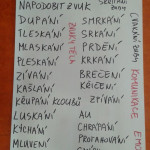 NAPODOBIT ZVUK
DUPÁNÍ
TLESKÁNÍ
MLASKÁNÍ
PLESKÁNÍ
ZÍVÁNÍ
KAŠLÁNÍ
KŘUPÁNÍ KLOUBŮ
LUSKÁNÍ
KÝCHÁNÍ
MLUVENÍ
ZVUKY TĚLA
SMRKÁNÍ
SRKÁNÍ
PRDĚNÍ
KRKÁNÍ
BREČENÍ
KŘIČENÍ
ZÍVÁNÍ
AU
CHRÁPÁNÍ
PROTAHOVÁNÍ
CVAKÁNÍ ZUBY
KOMUNIKACE